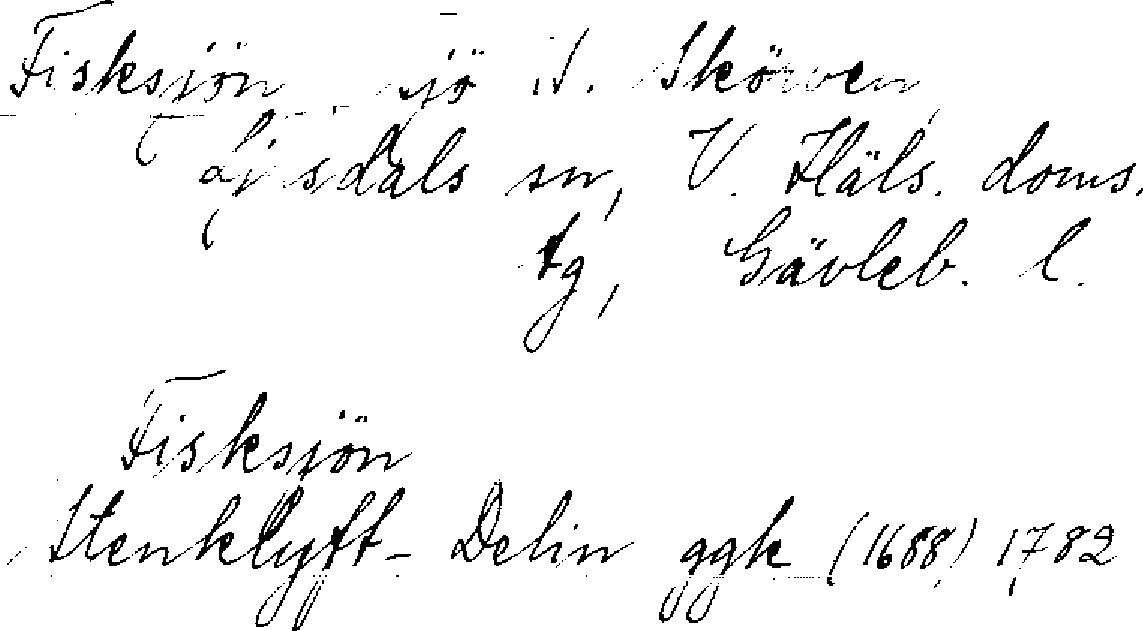 Fisksjön, sjö i N. Skörven,
Ljusdals sn, V. Häls. doms.
tg, Gävleb. l.
Fisksjön
Stenklyft- Delin ggk (1688) 1782